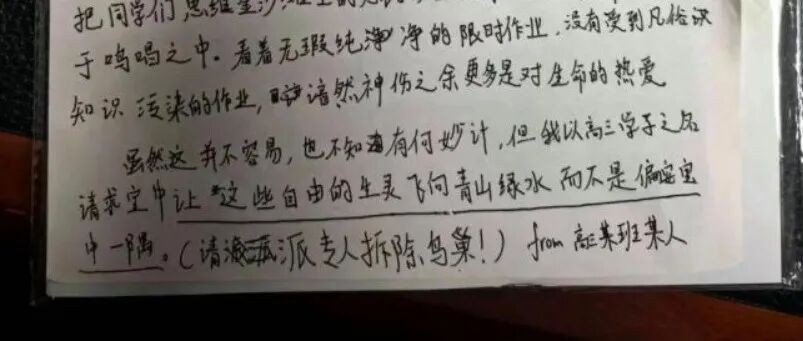 把同学们思维
于鸣唱之中。看着无瑕纯净净的限时作业，没有受到凡俗识
知识污染的作业，谙然神伤之余更多是对生命的热爱
虽然这并不容易，也不知有何妙计，但我以高三学子之名
请求宜中让“这些自由的生灵飞向青山绿水而不是偏安宜
中一隅。（请派专人拆除鸟巢！）from 高三某班某人